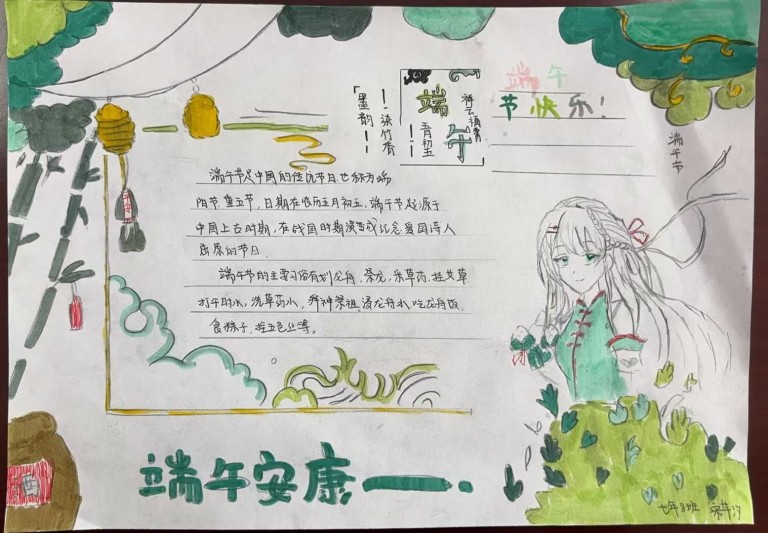 「墨韵——
——淡竹香
端午
五月初五
祥云福青
端午
节快乐!
端午节
端午节是中国的传统节日,也称为端
阳节,重五节,日期在农历五月初五,端午节起源于
中国上古时期,在战国时期演变成纪念爱国诗人
屈原的节日
端午节的主要习俗有划龙舟,祭龙,采草药,挂艾草
打午时水,洗草药水,拜神祭祖,浸龙舟水,吃龙舟饭,
食粽子,拴五色丝等。
酒
端午安康——·
七年8班